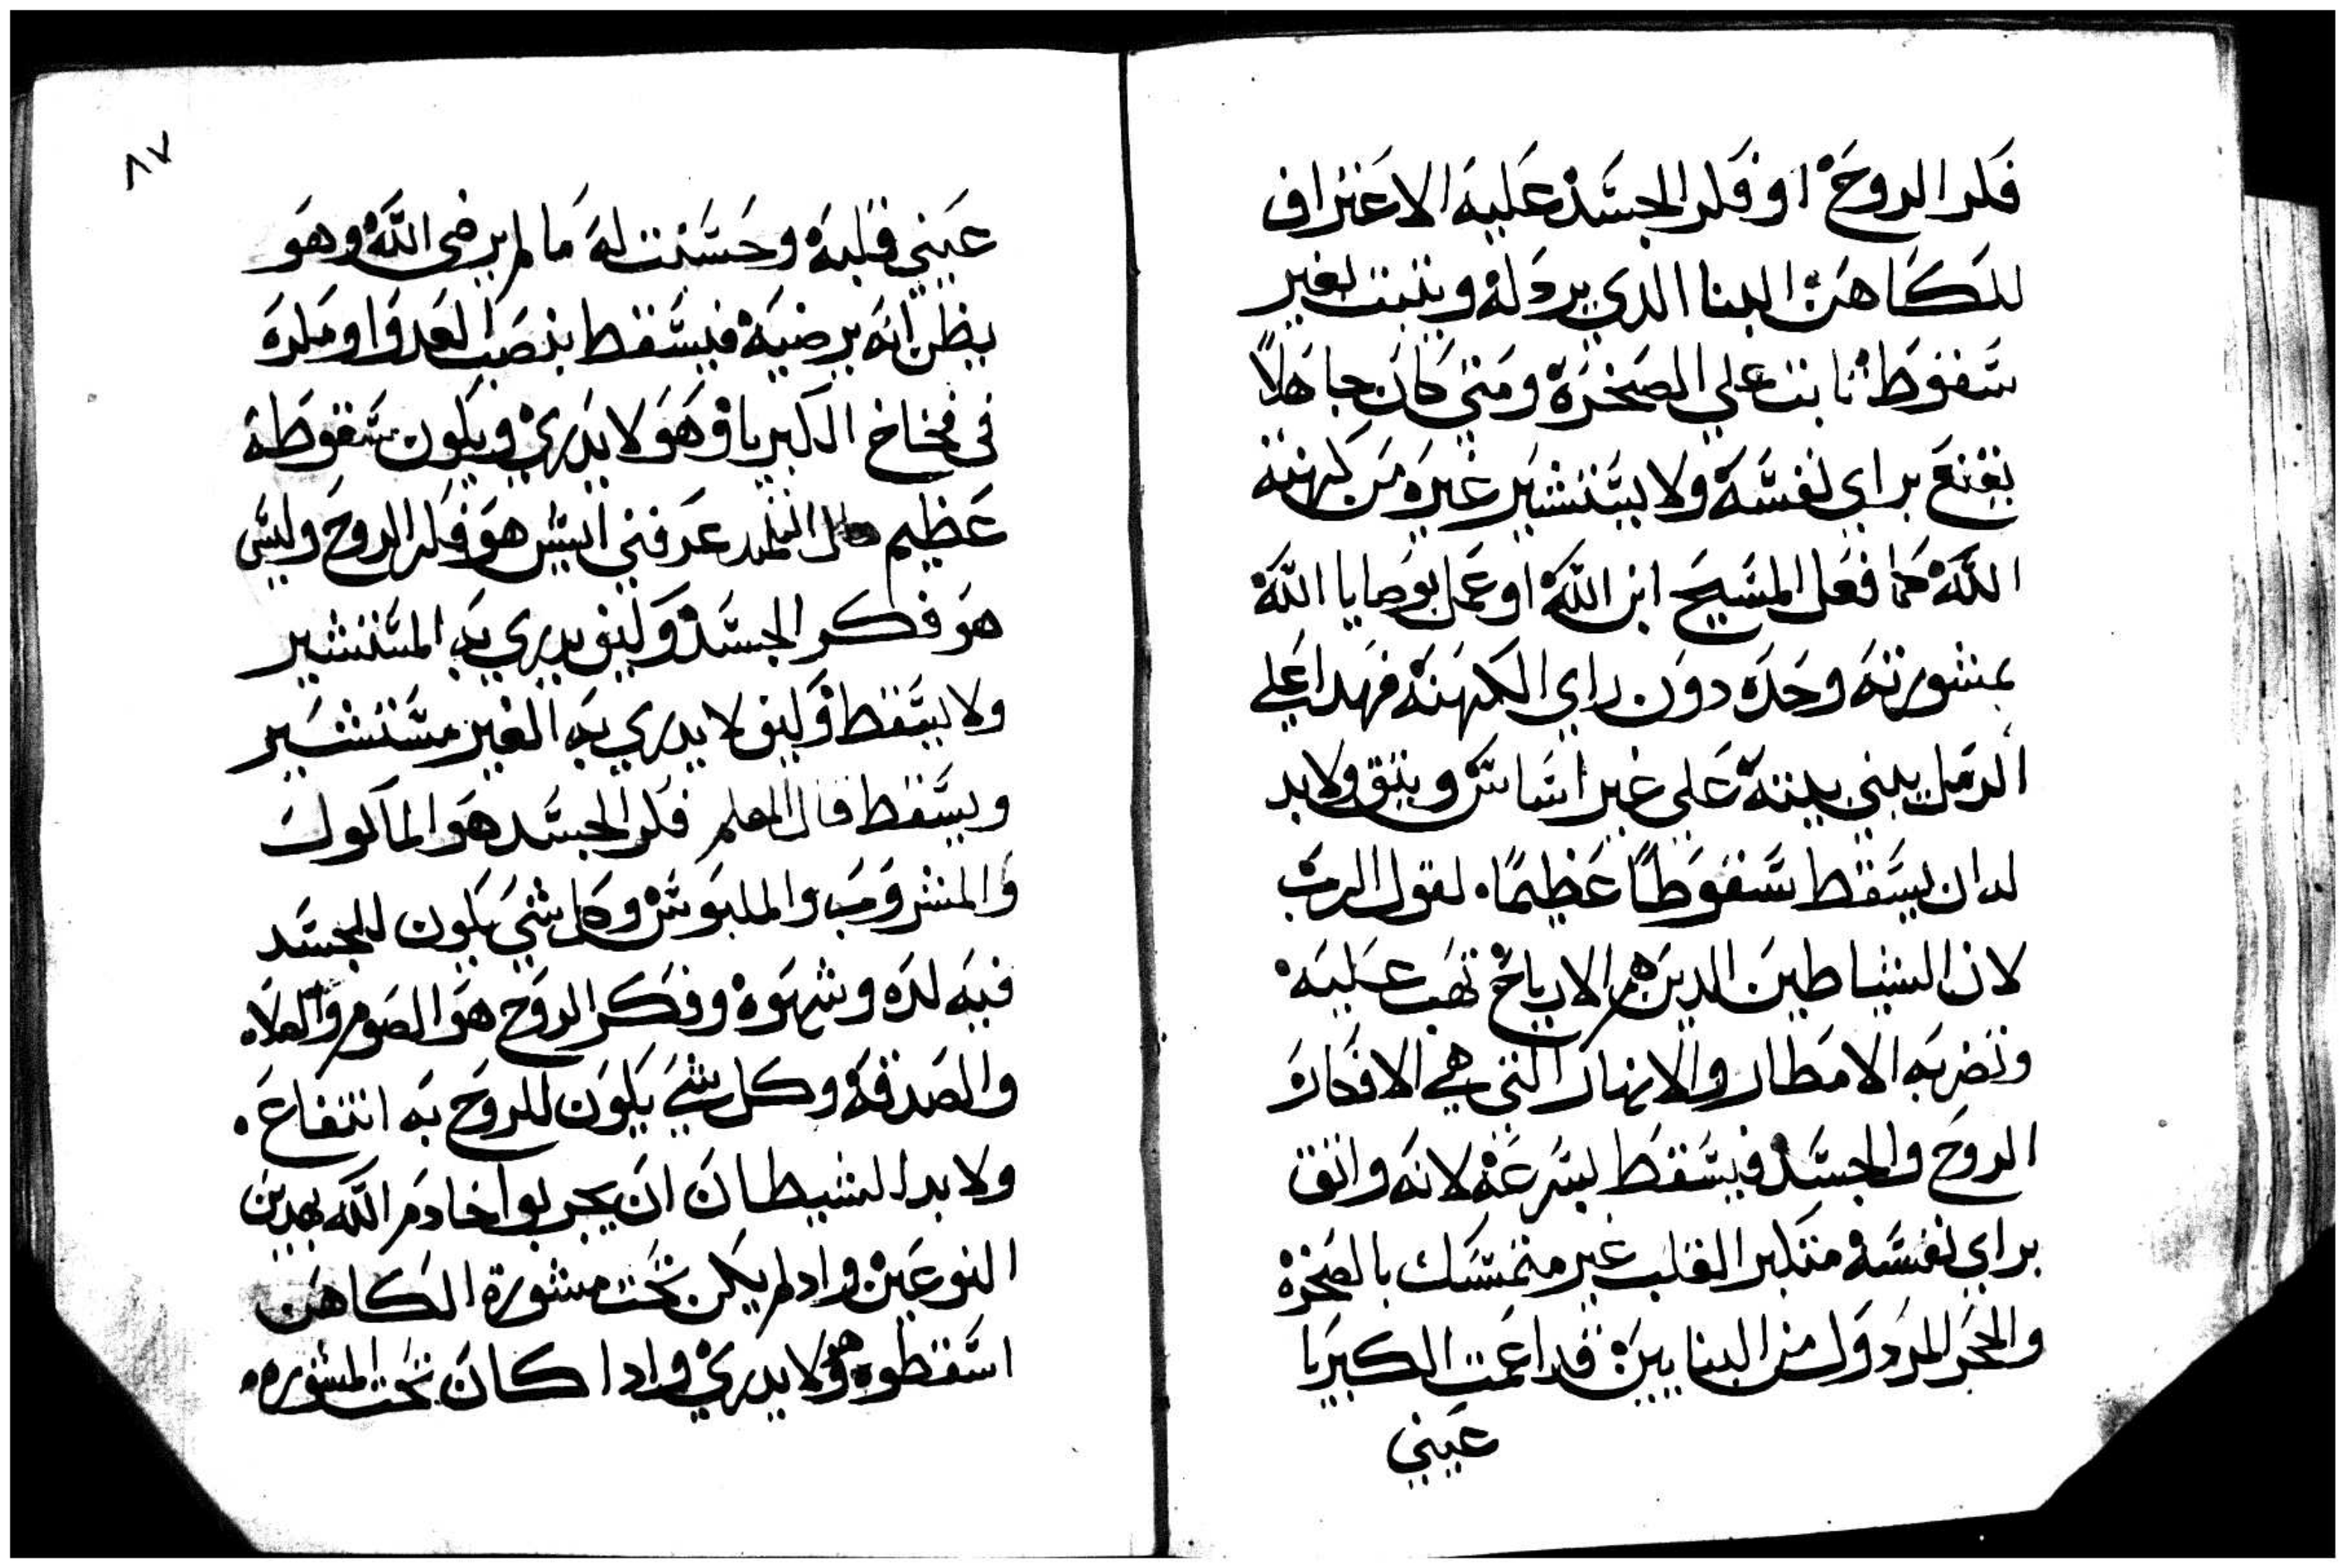 فكر الروح او فكر الجسد عليه الاعتراف
للكاهن البنا الدي يردله ويثبت لغير
سقوط ثابت علي الصخره ومتي كان جاهلاً
يقنع براي نفسه ولا يستشير غيره من كهنة
الله كما فعل المسيح ابن الله او عمل بوصايا الله
بمشورته وحده دون راي الكهنه فهدا علي
الرمل يبني بيته علي غير اساس وثيق ولابد
له ان يسقط سقوطاً عظيمًا. لقول الرب
لان الشياطين الدين هم الارياح تهب عليه
وتضربه الامطار والانهار التي هي الافكار
الروح والجسد فيسقط بسرعه لانه واثق
براي نفسه متكبر القلب غير متمسك بالصخره
والحجر المردول من البنايين قد اعمت الكبريا
عيني
٨٧
عيني قلبه وحسنت له ما لم يرضي الله وهو
يظن انه يرضيه فيسقط بنصب العدو او مكره
في فخاخ الكبريا وهو لا يدري ويكون سقوطه
عظيم قال التلميد عرفني ايش هو فكر الروح وايش
هو فكر الجسد وكيف يدري به المستشير
ولا يسقط وكيف لا يدري به الغير مستشير
ويسقط قال المعلم فكر الجسد هو الماكول
والمشروب والملبوس وكل شي يكون للجسد
فيه لده وشهوه وفكر الروح هو الصوم والصلاه
والصدقه وكل شي يكون للروح به انتفاع.
ولابد الشيطان ان يجربوا خادم الله بهدين
النوعين وادا لم يكن تحت مشورة الكاهن
اسقطوه وهو لا يدري وادا كان تحت المشوره.